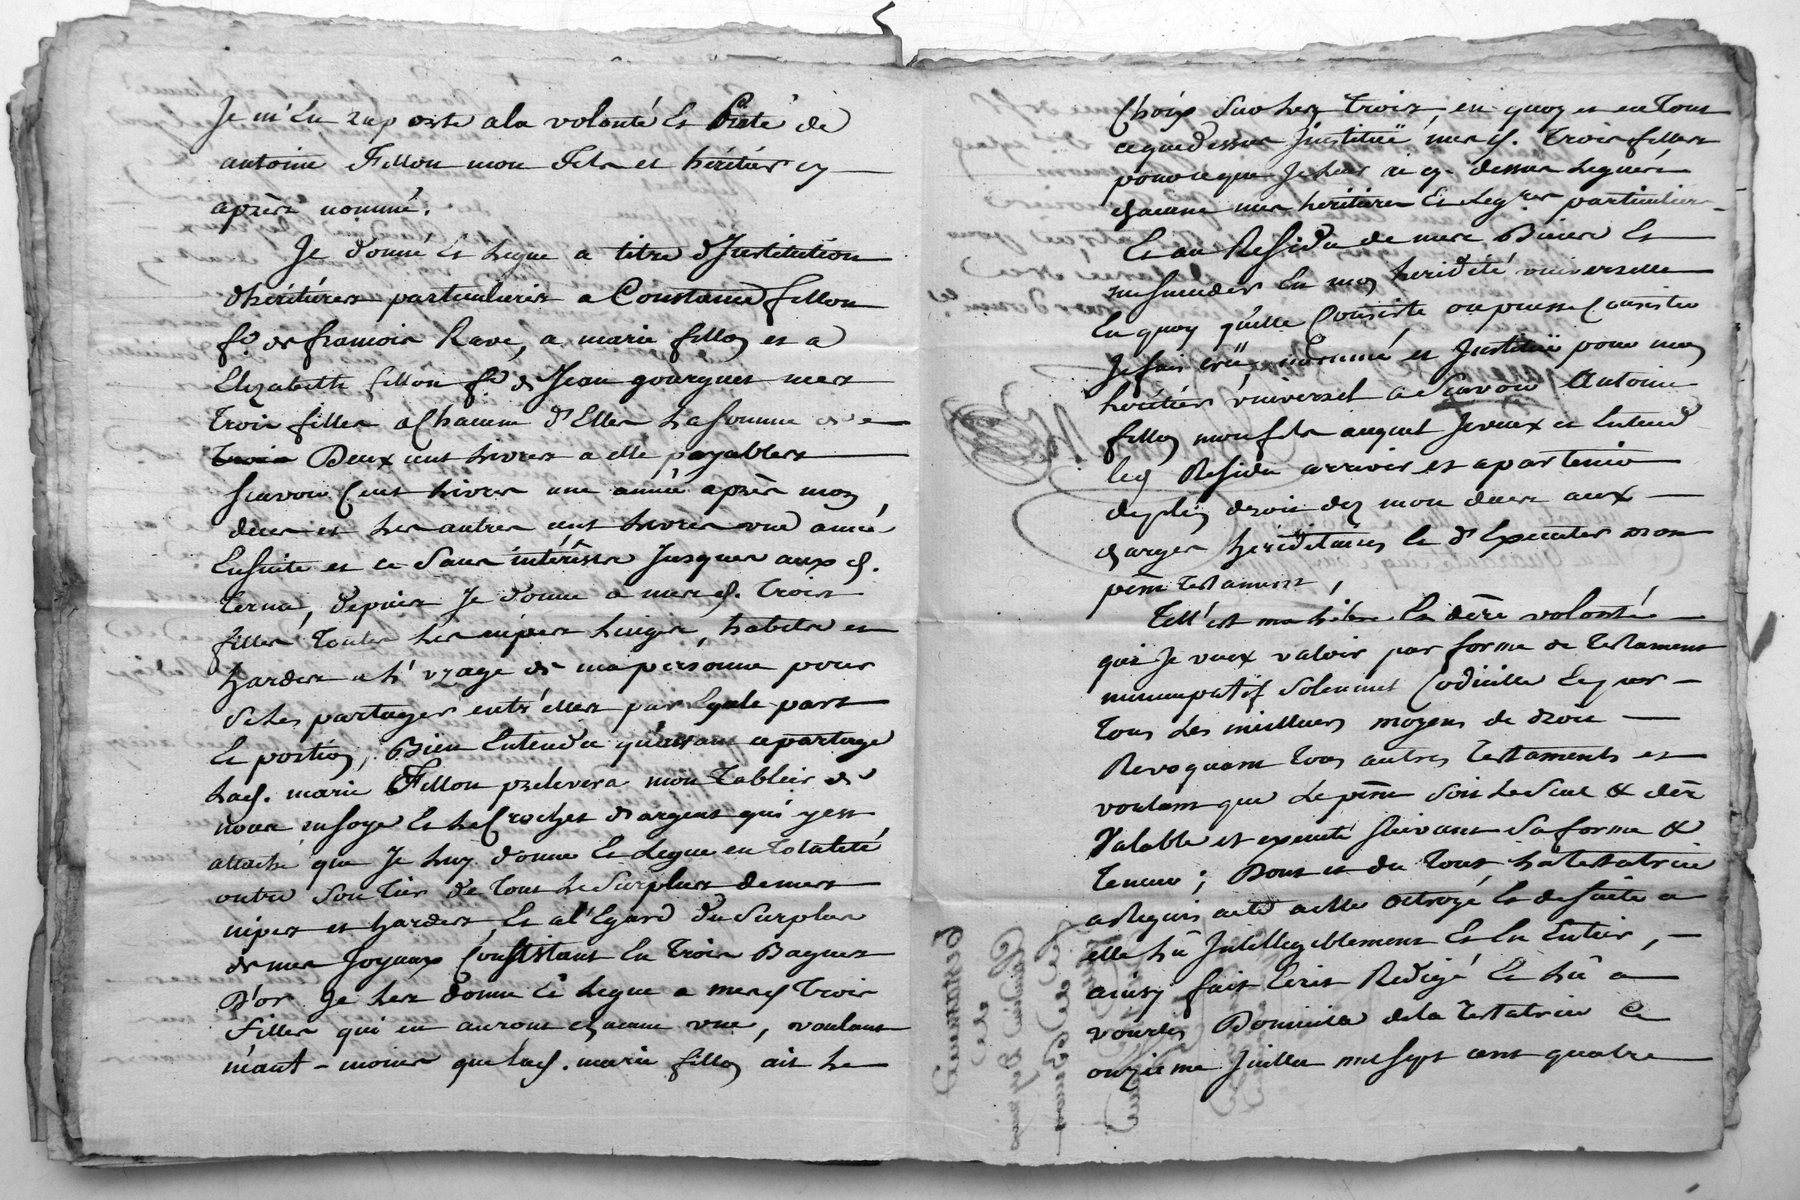 Je m'En raporte ala volonté Et Piété de
antoine Fillon mon fils et héritier cy
après nommé.
Je donné Et Legue a titre d'Institution
d'héritières particulieres a Constance fillon
fe. de francois Rave, a marie fillon et a
Elizabeth fillon fe. de Jean gourgues mes
trois filles a Chacune d'Elles La somme de
Deux cent livres a elle payables
scavoir Cent livres une année après mon
deces et Les autres cent livres une année
Ensuite et ce sans intérêts Jusques aux d.
terme, depuis Je donne a mes d. trois
filles toutes Les nipes Linges, habits et
hardes a L'uzage de ma personne pour
se Les partager entr'elles par Egale part
Et portion, Bien Entendu qu'avant ce partage
Lad. marie Fillon prelevera mon tablier de
noire en soye Et Le Crochet d'argent qui y est
attaché que Je Luy donne Et Legue en totalité
outre son tier de tout Le surplus de mes
nipes et hardes, Et al'Egard du surplus
de mes Joyaux Consistant En trois Bagues
D'or Je Les donne Et Legue a mes d. trois
filles qui en auront chacune une, voulant
néant-moins que Lad. marie fillon ait Le
Choix sur Les trois, en quoy et en tout
ce que dessus Jnstituë mes d. trois filles
pour ce que Je Leur ai cy-dessus Legué
chacune mes heritières Et Legres particulieres
Et au Residu de mes Biens Et
En mon heridité universelle
En quoy qu'elle Consiste ou puisse Consister
Je fais créé, nommé et Jnstitue pour mon
héritier universel a scavoir Antoine
fillon mon fils auquel Je veux et Entend
led Residu arriver et apartenir
de plein droit dez mon deces aux
charges heriditaires Et d'Executer mon
pént testament,
Tell'est ma Et dère volonté
que Je veux valoir par forme de testament
nuncupatif solennel Codicille Et par
tous Les meilleurs moyens de droit
Revoquant tous autres testaments et
voulant que Le pént soit Le seul & dér
Valable et executé suivant sa forme &
teneur; Dont et du tout La testatrice
a Requis acte a elle octroyé Et de suite a
elle Lû Jntelligiblement Et En Entier,
ainsy fait Ecrit Redigé Et Lû a
Domicile de la testatrice Ce
onzieme Juillet mil sept cent quatre